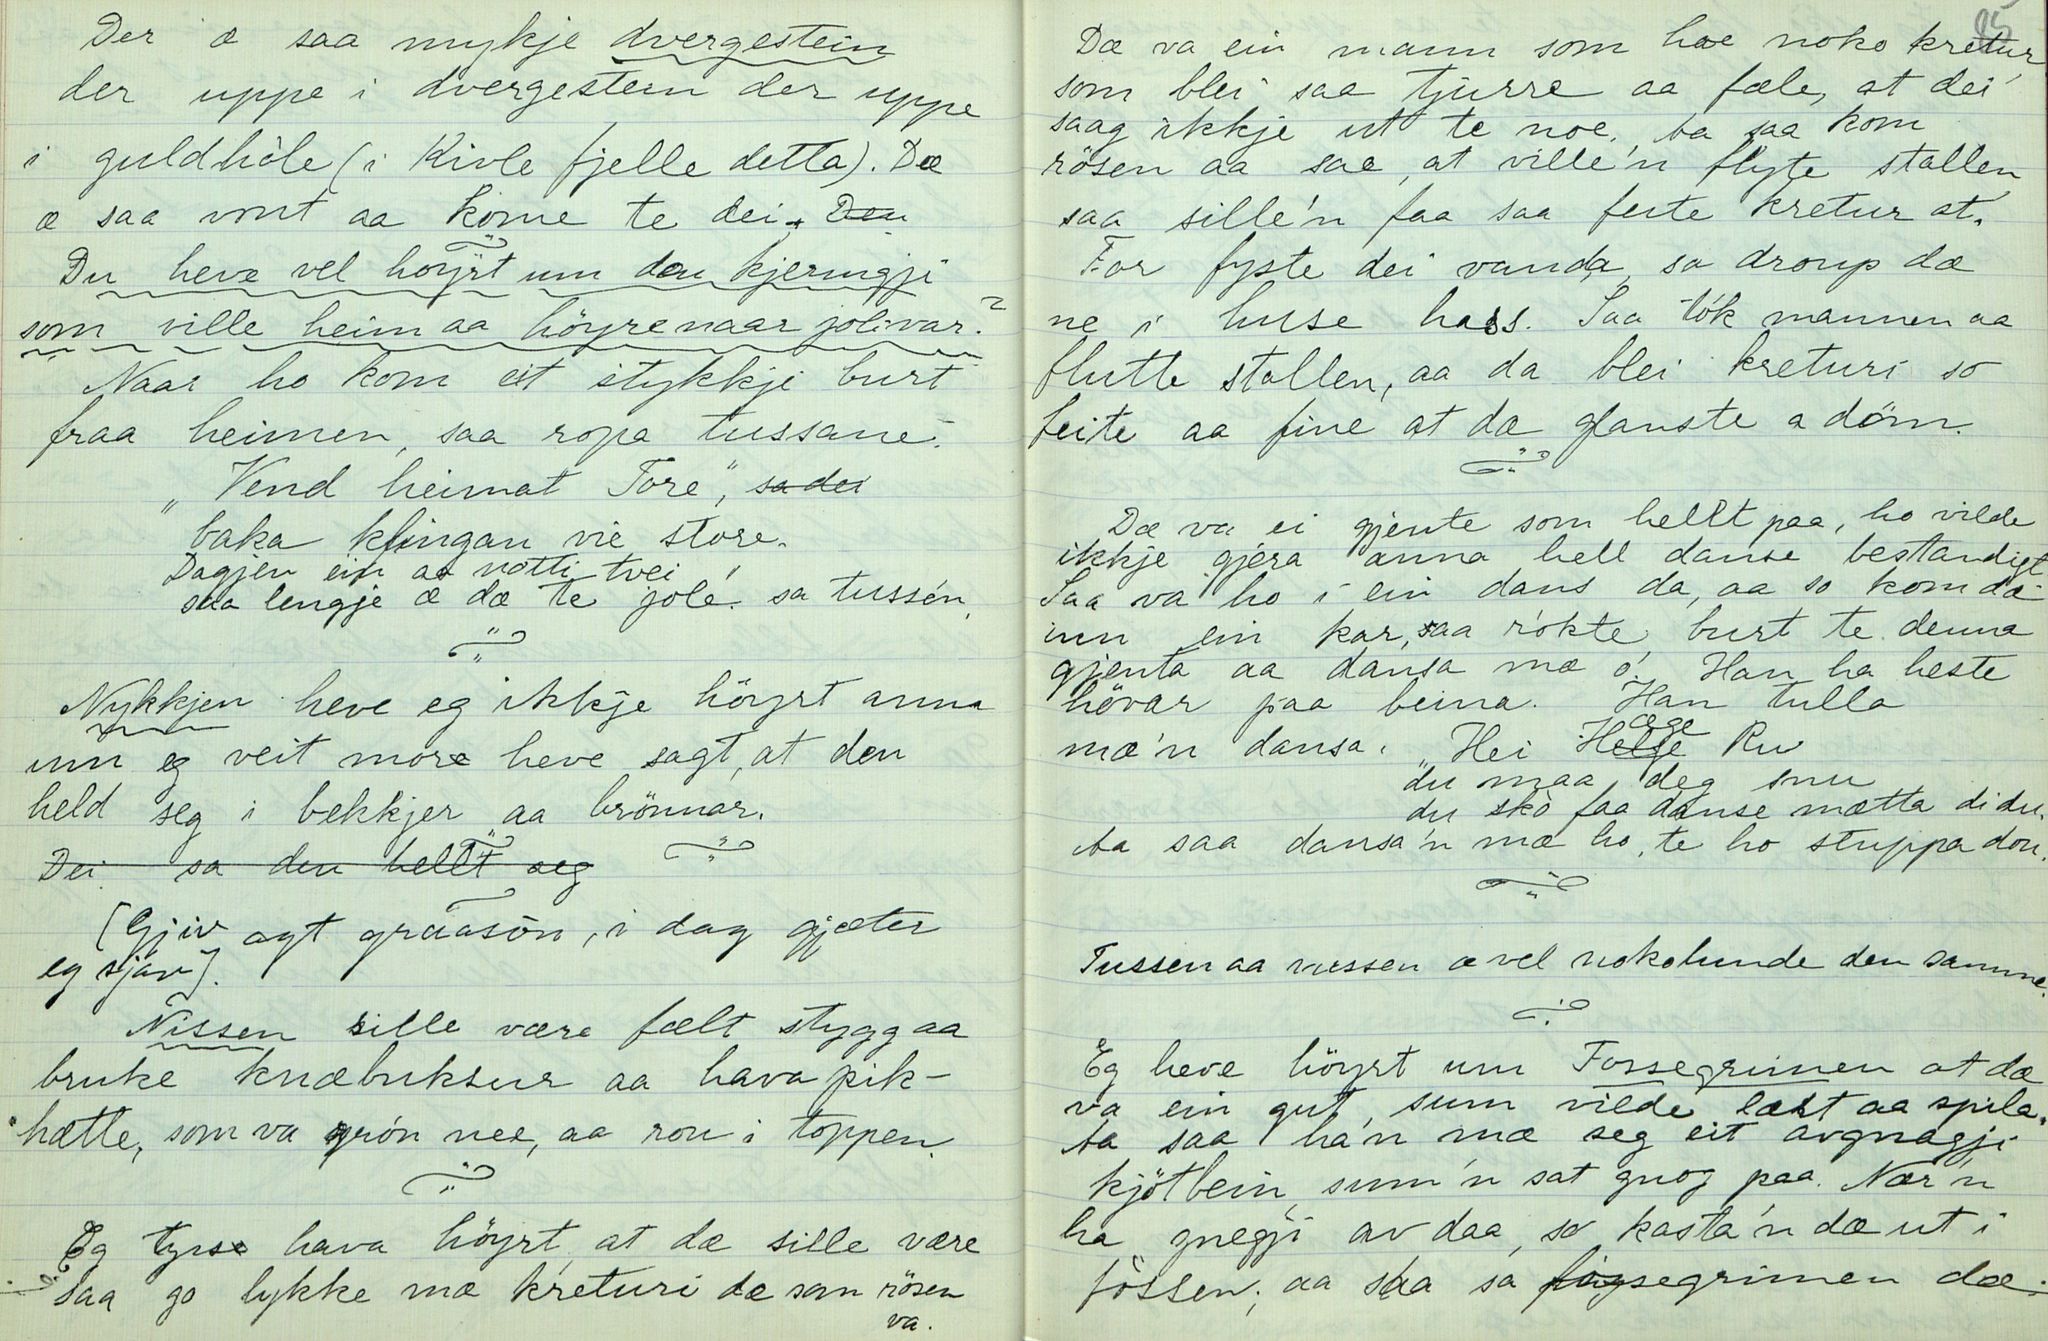 Der æ saa mykje dvergestein
der uppe i dvergestein der uppe
i guldhòle (i Kivle fjelle detta). Dæ
æ saa vont aa kome te dei. Den
Du heve vel høyrt um den kjeringji
som ville heim aa höyre naar joli var?
Naar ho kom eit stykkji burt
fraa heimen, saa ropa tussane:
"Vend heimat Tore", sa dei
baka klingan vie store.
Dagjen ein aa notti tvei
saa lengje æ dæ te jole! sa tussén.
Nykkjen heve eg ikkje höyrt anna
um eg veit more heve sagt, at den
held seg i bekkjer aa brönnar.
Dei sa den hellt seg
[Gjiv agt graasön, i dag gjæter
eg sjav].
Nissen sille være fælt stygg aa
bruke knæbuksur aa hava pik-
hætte, som va grón nee, aa rou i toppen.
Eg tyse hava höyrt, at dæ sille være
saa go lykke mæ kreturi dæ som rösen
va.
95
Dæ va ein mann som hae noko kretur,
som blei saa tjurre aa fæle, at dei
saag ikkje ut te noe. Aa saa kom
rösen aa sae, at ville'n flyte stallen,
saa sille'n faa saa feite kretur at.
For fyste dei vanda, so droup dæ
ne i huse hass. Saa tók mannen aa
flutte stallen, aa da blei kreturi so
feite aa fine at dæ glanste a dóm.
Dæ va ei gjente som hellt paa, ho vilde
ikkje gjera anna hell danse bestandigt
Saa va ho i ein dans da, aa so kom dæ
inn ein kar, saa rókte burt te denna
gjenta aa dansa mæ ó. Han ha heste
hövar paa beina. Han tulla
æge
mæ'n dansa. "Hei Helge Ru
du maa deg snu
du skò faa danse mætta di du.
Aa saa dansa'n mæ ho, te ho stuppa dou.
Tussen aa nissen æ vel nokolunde den samme.
Eg heve höyrt um Fossegrimen at dæ
va ein gut, sum vilde lært aa spila.
Aa saa ha'n mæ seg eit avgnagji
kjötbein, sum'n sat gnog paa. Nær'n
ha gnegji av daa, so kasta'n dæ ut i
fòssen, aa saa sa fossegrimen dæ.